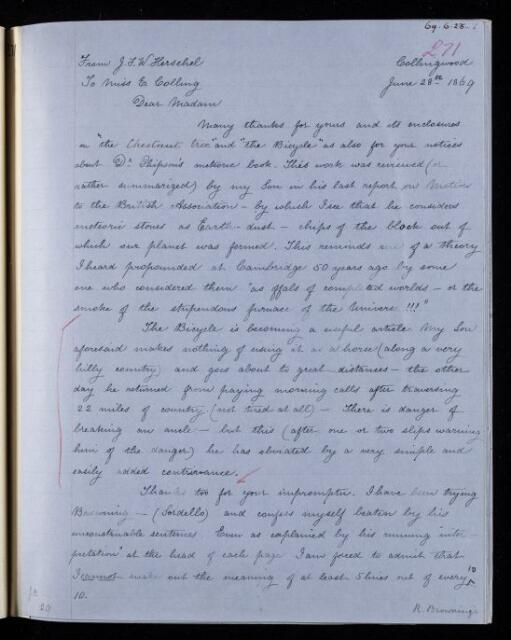 69.6.28.1
271
From J.F.W Herschel Collingwood
To Miss E Colling June 28th 1869
Dear Madam
Many thanks for yours and its enclosures
on "the Chestnut tree" and "the Bicycle" as also for your notices
about Dr. Phipson's meteoric book. This work was reviewed (or
rather summarized) by my Son in his last report on Meteors
to the British Association – by which I see that he considers
meteoric stones as Earth-dust – chips of the block out of
which our planet was formed. This reminds me of a theory
I heard propounded at Cambridge 50 years ago by some
one who considered them "as offals of completed worlds – or the
smoke of the stupendous furnace of the Universe !!!"
The Bicycle is becoming a useful article My Son
aforesaid makes nothing of using it as a horse (along a very
hilly country) and goes about to great distances – the other
day he returned from paying morning calls after traversing
22 miles of country (not tired at all) – There is danger of
breaking an ancle – but this (after one or two slips warning
him of the danger) he has obviated by a very simple and
easily added contrivance.
Thanks too for your impromptu. I have been trying
Browning – (Sordello) and confess myself beaten by his
unconstruable sentences. Even as explained by his running "inter-
pretation" at the head of each page I am forced to admit that
I cannot make out the meaning of at least 5 lines out of every
10.
R. Browning